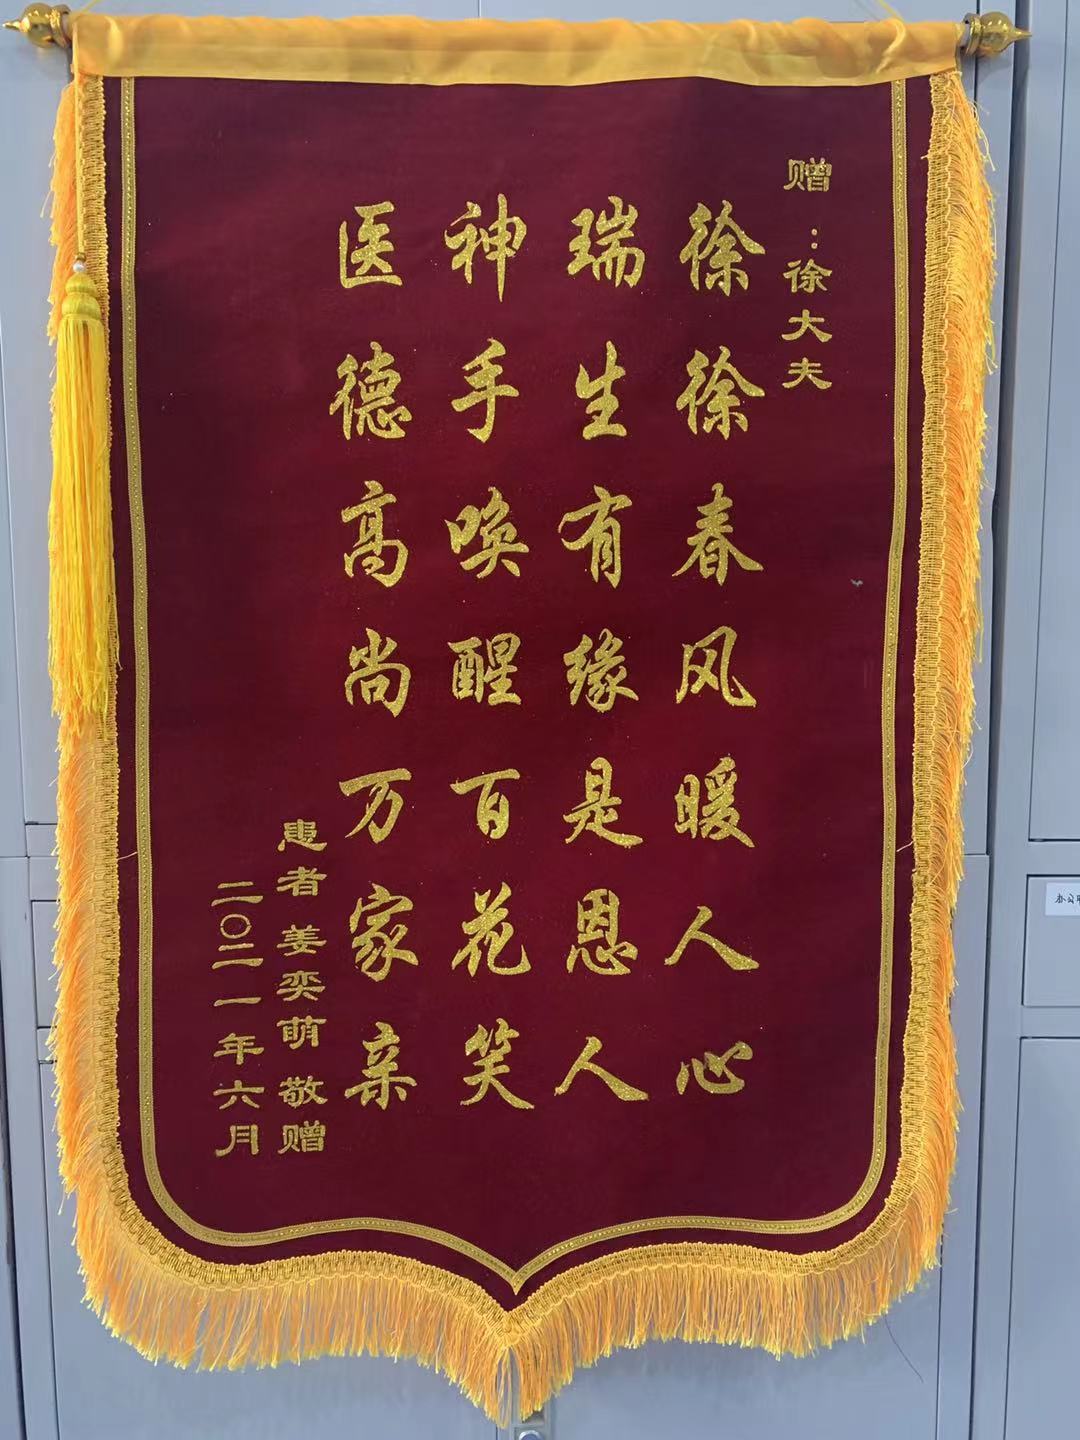 赠：徐大夫
徐徐春风暖人心
瑞生有缘是恩人
神手唤醒百花笑
医德高尚万家亲
患者 姜奕萌 敬赠
二〇二一年六月